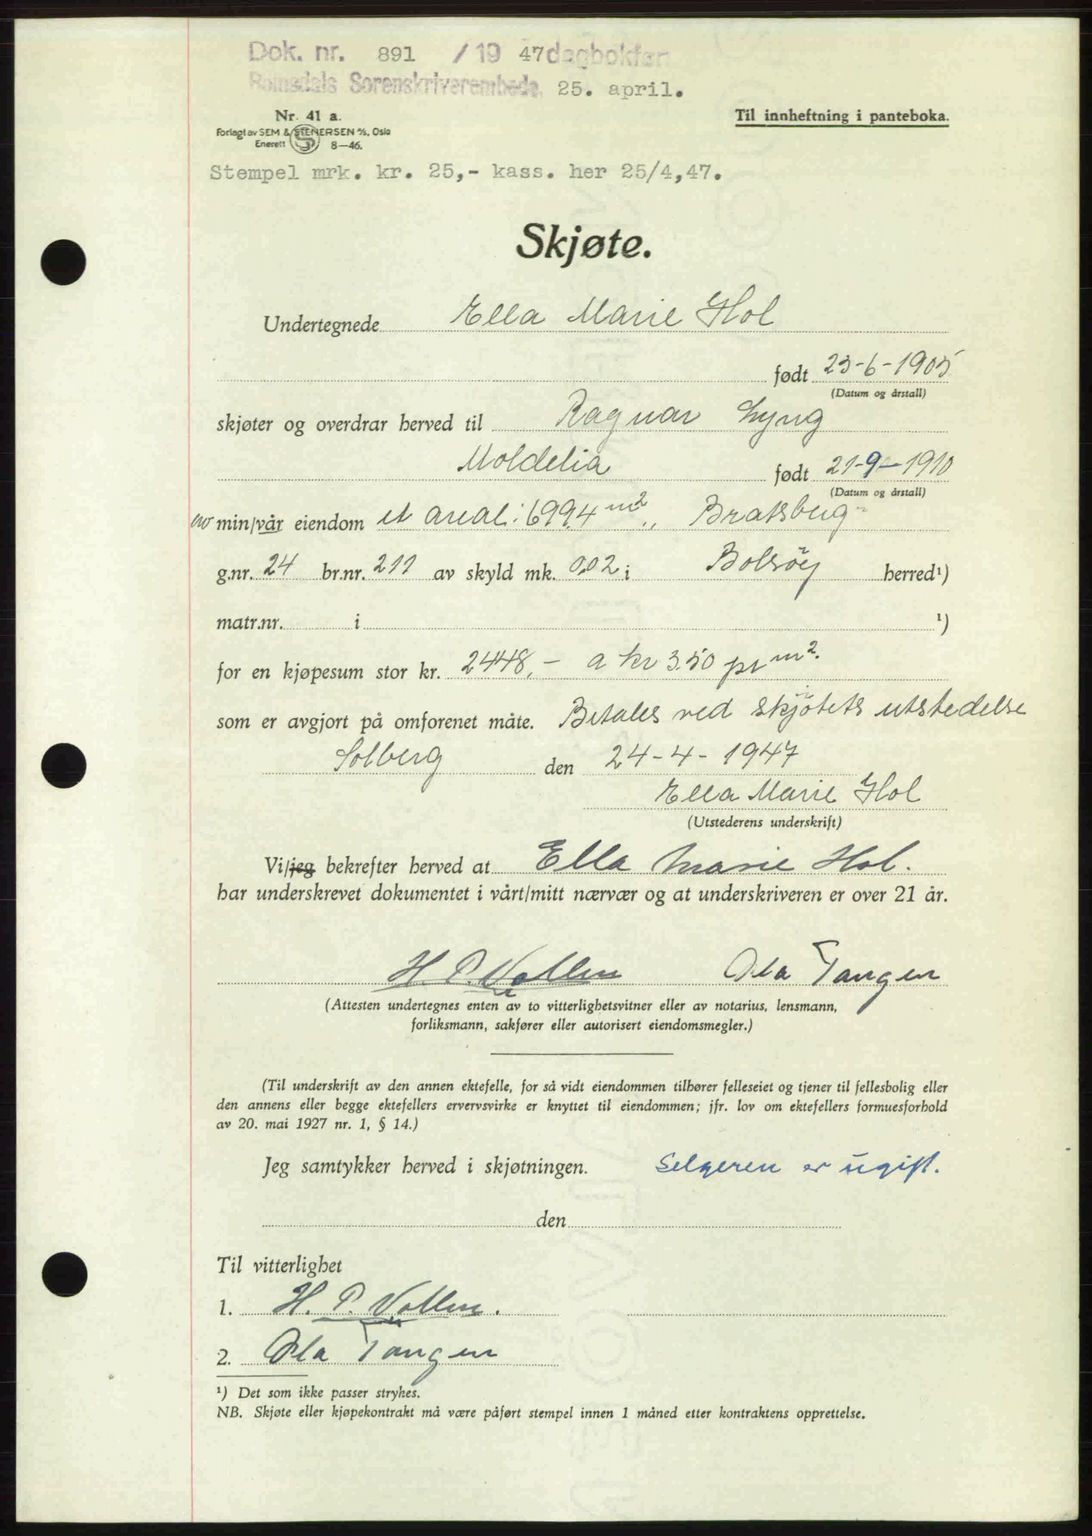 Dok. nr. 891 / 19 47 dagbokføri
Romsdals Sorenskriverembede, 25. april.
Nr. 41 a.
Til innheftning i panteboka.
Forlagt av SEM & STENERSEN A/S, Oslo
Enerett 8—46.
Stempel mrk. kr. 25,- kass. her 25/4,47.
Skjøte.
Undertegnede Ella Marie Hol
født 23-6-1905
(Datum og årstall)
skjøter og overdrar herved til Ragnar Lyng
Moldelia født 21-9-1910
(Datum og årstall)
av min/vår eiendom et areal: 699,4 m² „ Bratsberg"
g.nr. 24 br.nr. 211 av skyld mk. 0,02 i Bolsöy herred¹)
matr.nr. i ¹)
for en kjøpesum stor kr. 2448,- a kr 3.50 pr m².
som er avgjort på omforenet måte. Betales ved skjötets utstedelse
Solberg den 24-4-1947
Ella Marie Hol
(Utstederens underskrift)
Vi/jeg bekrefter herved at Ella Marie Hol.
har underskrevet dokumentet i vårt/mitt nærvær og at underskriveren er over 21 år.
H. P. Vollen Ola Tangen
(Attesten undertegnes enten av to vitterlighetsvitner eller av notarius, lensmann,
forliksmann, sakfører eller autorisert eiendomsmegler.)
(Til underskrift av den annen ektefelle, for så vidt eiendommen tilhører felleseiet og tjener til fellesbolig eller
den annens eller begge ektefellers ervervsvirke er knyttet til eiendommen; jfr. lov om ektefellers formuesforhold
av 20. mai 1927 nr. 1, § 14.)
Jeg samtykker herved i skjøtningen. Selgeren er ugift.
den
Til vitterlighet
1. H. P. Vollen.
2. Ola Tangen
¹) Det som ikke passer strykes.
NB. Skjøte eller kjøpekontrakt må være påført stempel innen 1 måned etter kontraktens opprettelse.